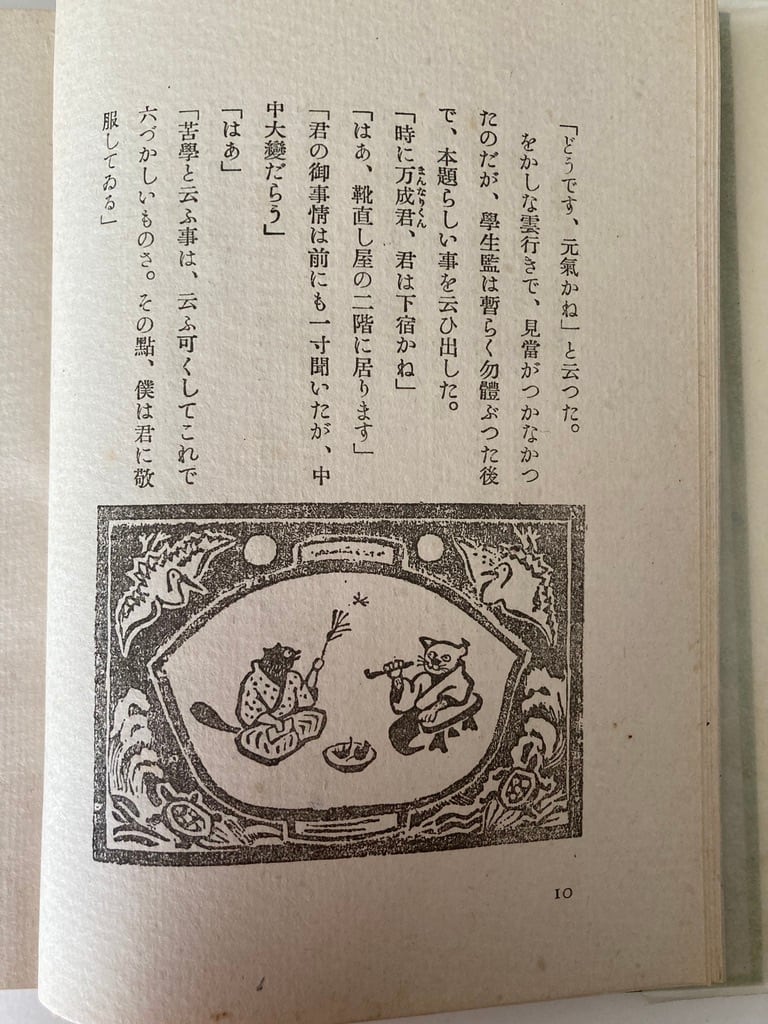 「どうです、元氣かね」と云つた。
をかしな雲行きで、見當がつかなかつ
たのだが、學生監は暫らく勿體ぶつた後
で、本題らしい事を云ひ出した。
「時に万成君、君は下宿かね」
まんなりくん
「はあ、靴直し屋の二階に居ります」
「君の御事情は前にも一寸聞いたが、中
中大變だらう」
「はあ」
「苦學と云ふ事は、云ふ可くしてこれで
六づかしいものさ。その點、僕は君に敬
服してゐる」
10